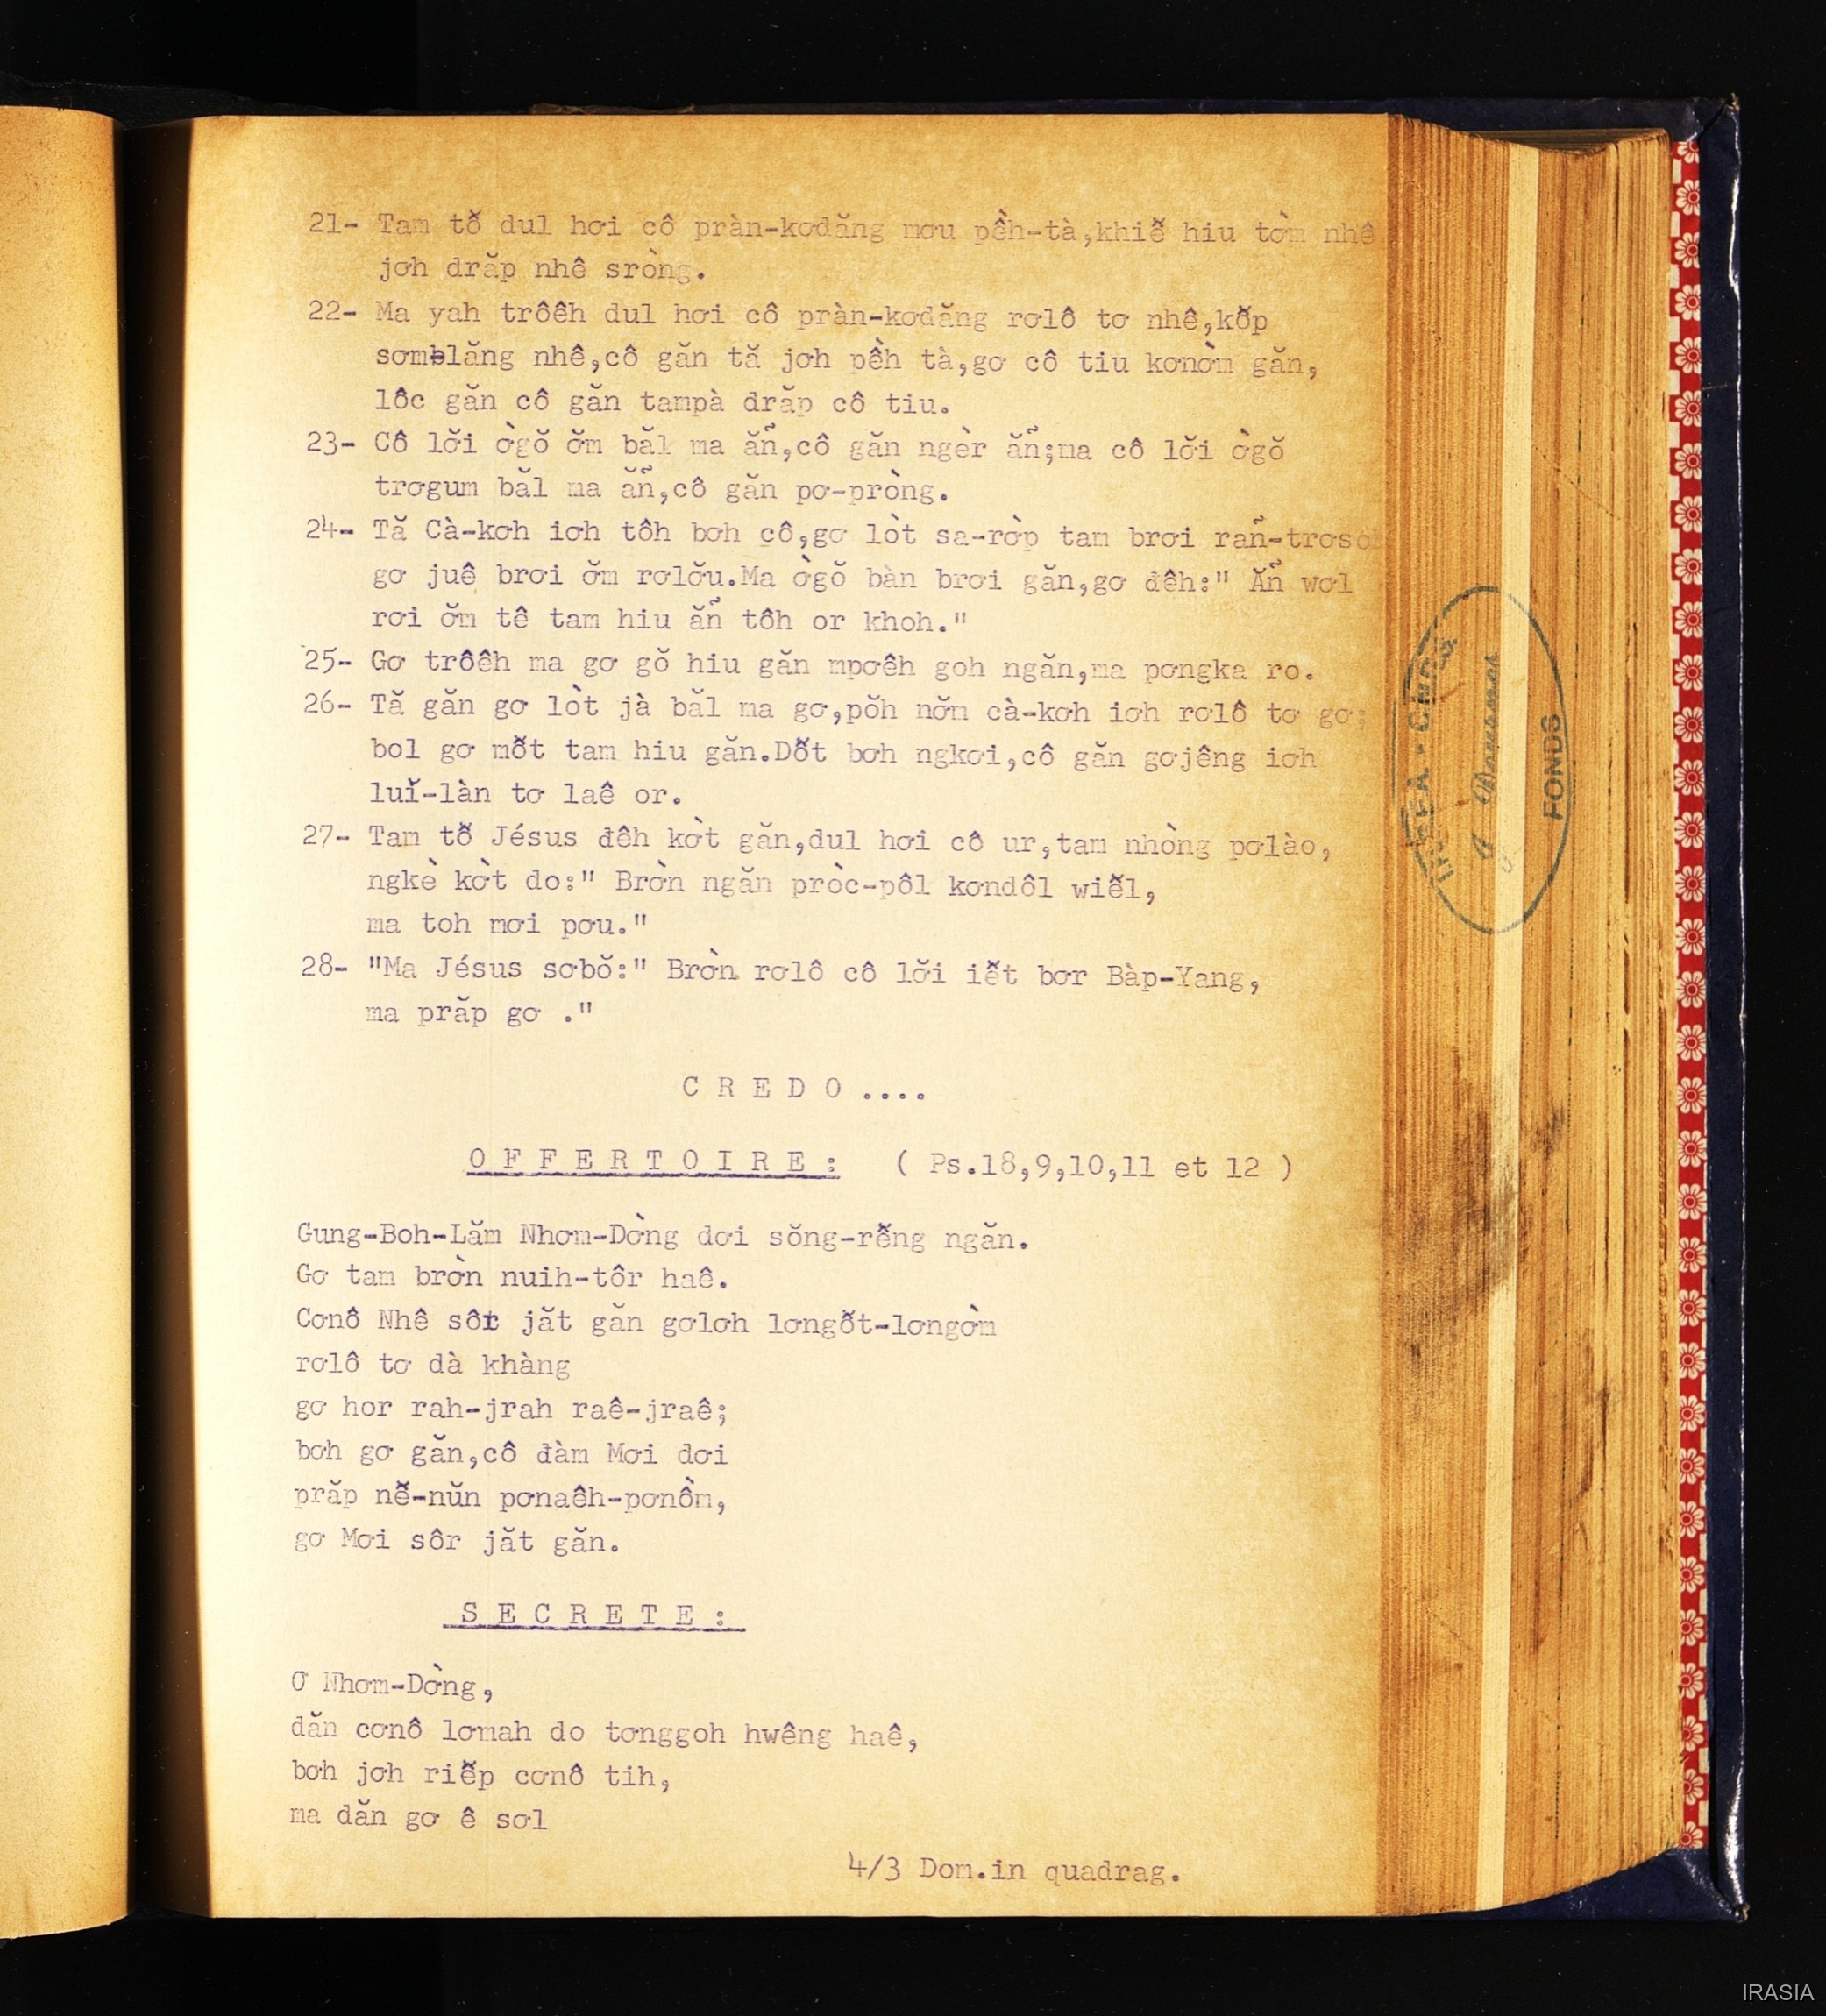 21- Tam tơ̆̂ dul hơi cô pràn-kơdăng mơu pềh-tà,khiê̆ hiu tờm nhê
jơh drăp nhê sròng.
22- Ma yah trôêh dul hơi cô pràn-kơdăng rơlô tơ nhê,kô̆p
sơmblăng nhê,cô găn tă jơh pềh tà,gơ cô tiu kơnờm găn,
lôc găn cô găn tampà drăp cô tiu.
23- Cô lơ̆i ờgŏ ơ̆m băl ma ăñ,cô găn ngèr ăñ;ma cô lơ̆i ờgŏ
trơgum băl ma ăñ,cô găn pơ-pròng.
24- Tă Cà-kơh iơh tôh bơh cô,gơ lòt sa-rờp tam brơi rañ-trơso
gơ juê brơi ơ̆m rơlơ̆u.Ma ờgŏ bàn brơi găn,gơ đêh:" Ăñ wơl
rơi ơ̆m tê tam hiu ăñ tôh or khoh."
25- Gơ trôêh ma gơ gŏ hiu găn mpơêh goh ngăn,ma pơngka ro.
26- Tă găn gơ lòt jà băl ma gơ,pŏh nơ̆m cà-kơh iơh rơlô tơ gơ;
bol gơ mô̆t tam hiu găn.Dô̆t bơh ngkơi,cô găn gơjêng iơh
luĭ-làn tơ laê or.
27- Tam tô̆ Jésus đêh kờt găn,dul hơi cô ur,tam nhòng pơlào,
ngkè kờt do:" Brờn ngăn pròc-pôl kơndôl wiê̆l,
ma toh mơi pơu."
28- "Ma Jésus sơbŏ:" Brờn rơlô cô lơ̆i iê̆t bơr Bàp-Yang,
ma prăp gơ ."
C R E D O ....
O F F E R T O I R E : ( Ps.18,9,10,11 et 12 )
Gung-Boh-Lăm Nhơm-Dờng dơi sŏng-rê̆ng ngăn.
Gơ tam brờn nuih-tôr haê.
Cơnô Nhê sôr jăt găn gơlơh lơngô̆t-lơngờm
rơlô tơ dà khàng
gơ hor rah-jrah raê-jraê;
bơh gơ găn,cô đàm Mơi dơi
prăp nê̆-nŭn pơnaêh-pơnồm,
gơ Mơi sôr jăt găn.
S E C R E T E :
Ơ Nhơm-Dờng,
dăn cơnô lơmah do tơnggoh hwêng haê,
bơh jơh riê̆p cơnô tih,
ma dăn gơ ê sơl
4/3 Dom.in quadrag.
FONDS
IRASIA